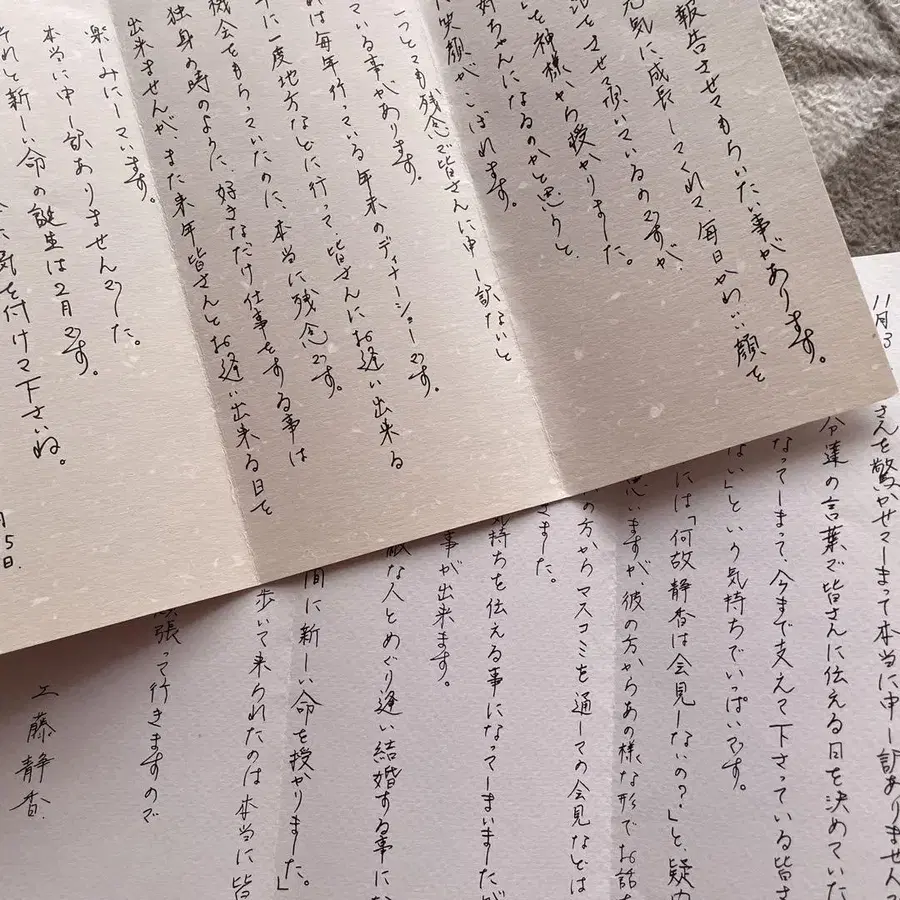 報告させてもらいたい事があります。
元気に成長してくれて毎日かわいい顔を
させて頂いているのですが
と神様から授かりました。
姉ちゃんになるのかと思うと、
笑顔がこぼれます。
とっても残念で皆さんに申し訳ないと
ている事があります。
は毎年行っている年末のディナーショーです。
に一度地方などに行って、皆さんにお逢い出来る
機会をもらっていたのに、本当に残念です。
独身の時のように、好きなだけ仕事をする事は
出来ませんが、また来年皆さんとお逢い出来る日を
楽しみにしています。
本当に申し訳ありませんでした。
それと新しい命の誕生は2月です。
気を付けて下さいね。
月5日.
11月3
さんを驚かせてしまって本当に申し訳ありません
分達の言葉で皆さんに伝える日を決めていた
なってしまって、今まで支えて下さっている皆さ
ない」という気持ちでいっぱいです。
には「何故静香は会見しないの?」と、疑内
思いますが、彼の方からあの様な形でお話
の方からマスコミを通しての会見などは
ました。
気持ちを伝える事になってしまいましたが
事が出来ます。
敵な人とめぐり逢い結婚する事にな
間に新しい命を授かりました。」
歩いて来られたのは本当に皆
張って行きますので
工藤静香.